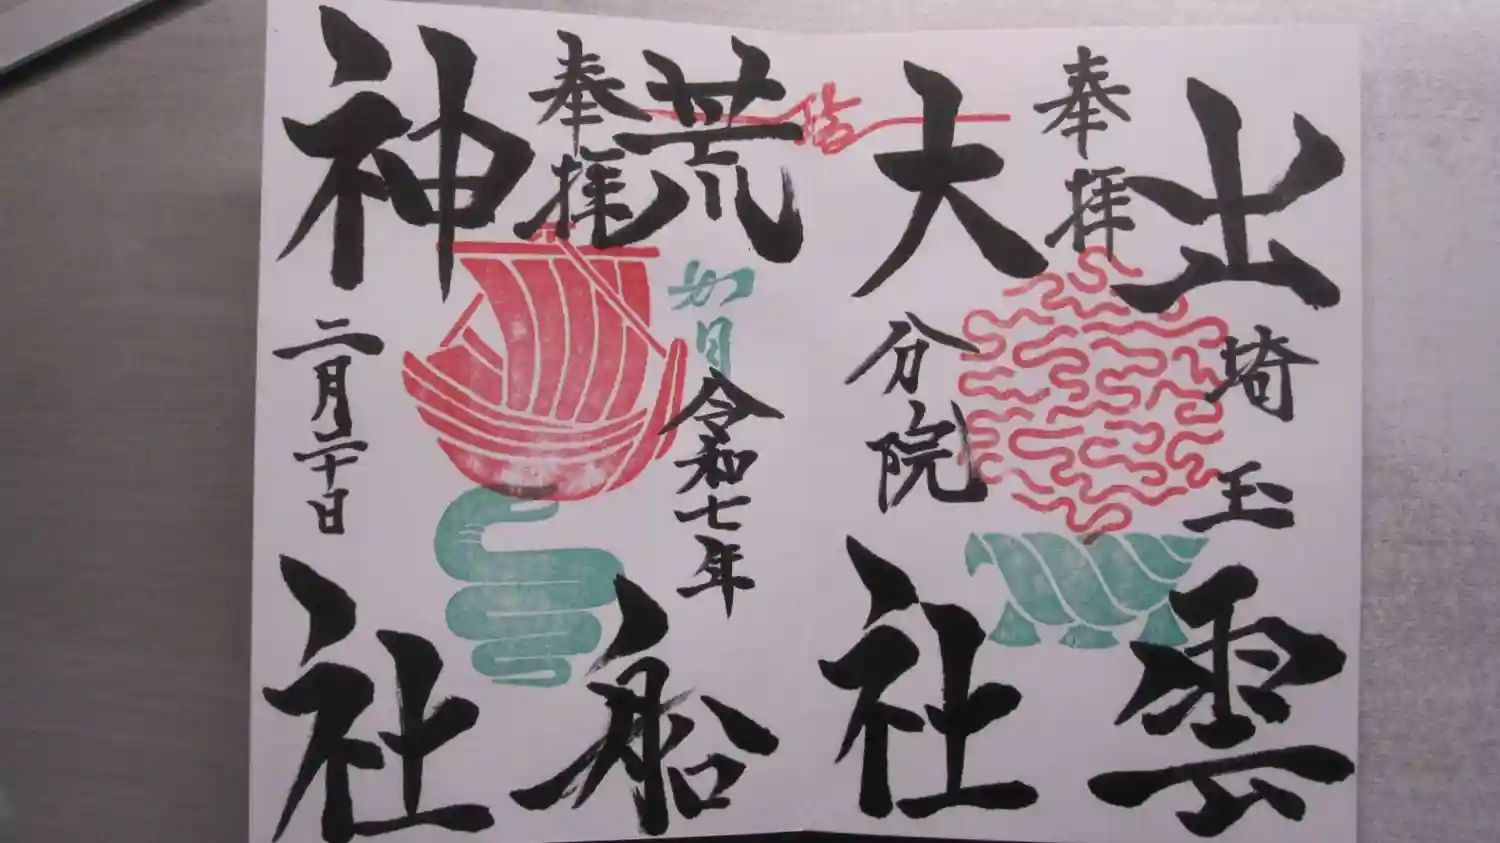 奉拝
出雲
大社
埼玉
分院
奉拝
荒船
神社
如月
令和七年
二月二十日